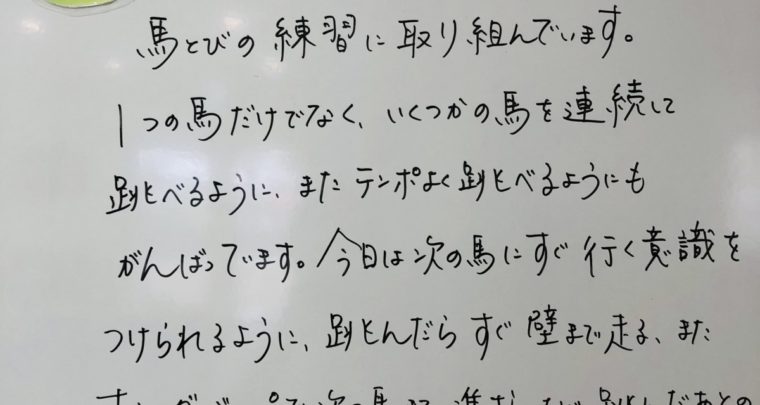 馬とびの練習に取り組んでいます。
1つの馬だけでなく、いくつかの馬を連続して
跳べるように、またテンポよく跳べるようにも
がんばっています。今日は次の馬にすぐ行く意識を
つけられるように、跳んだらすぐ壁まで走る、また